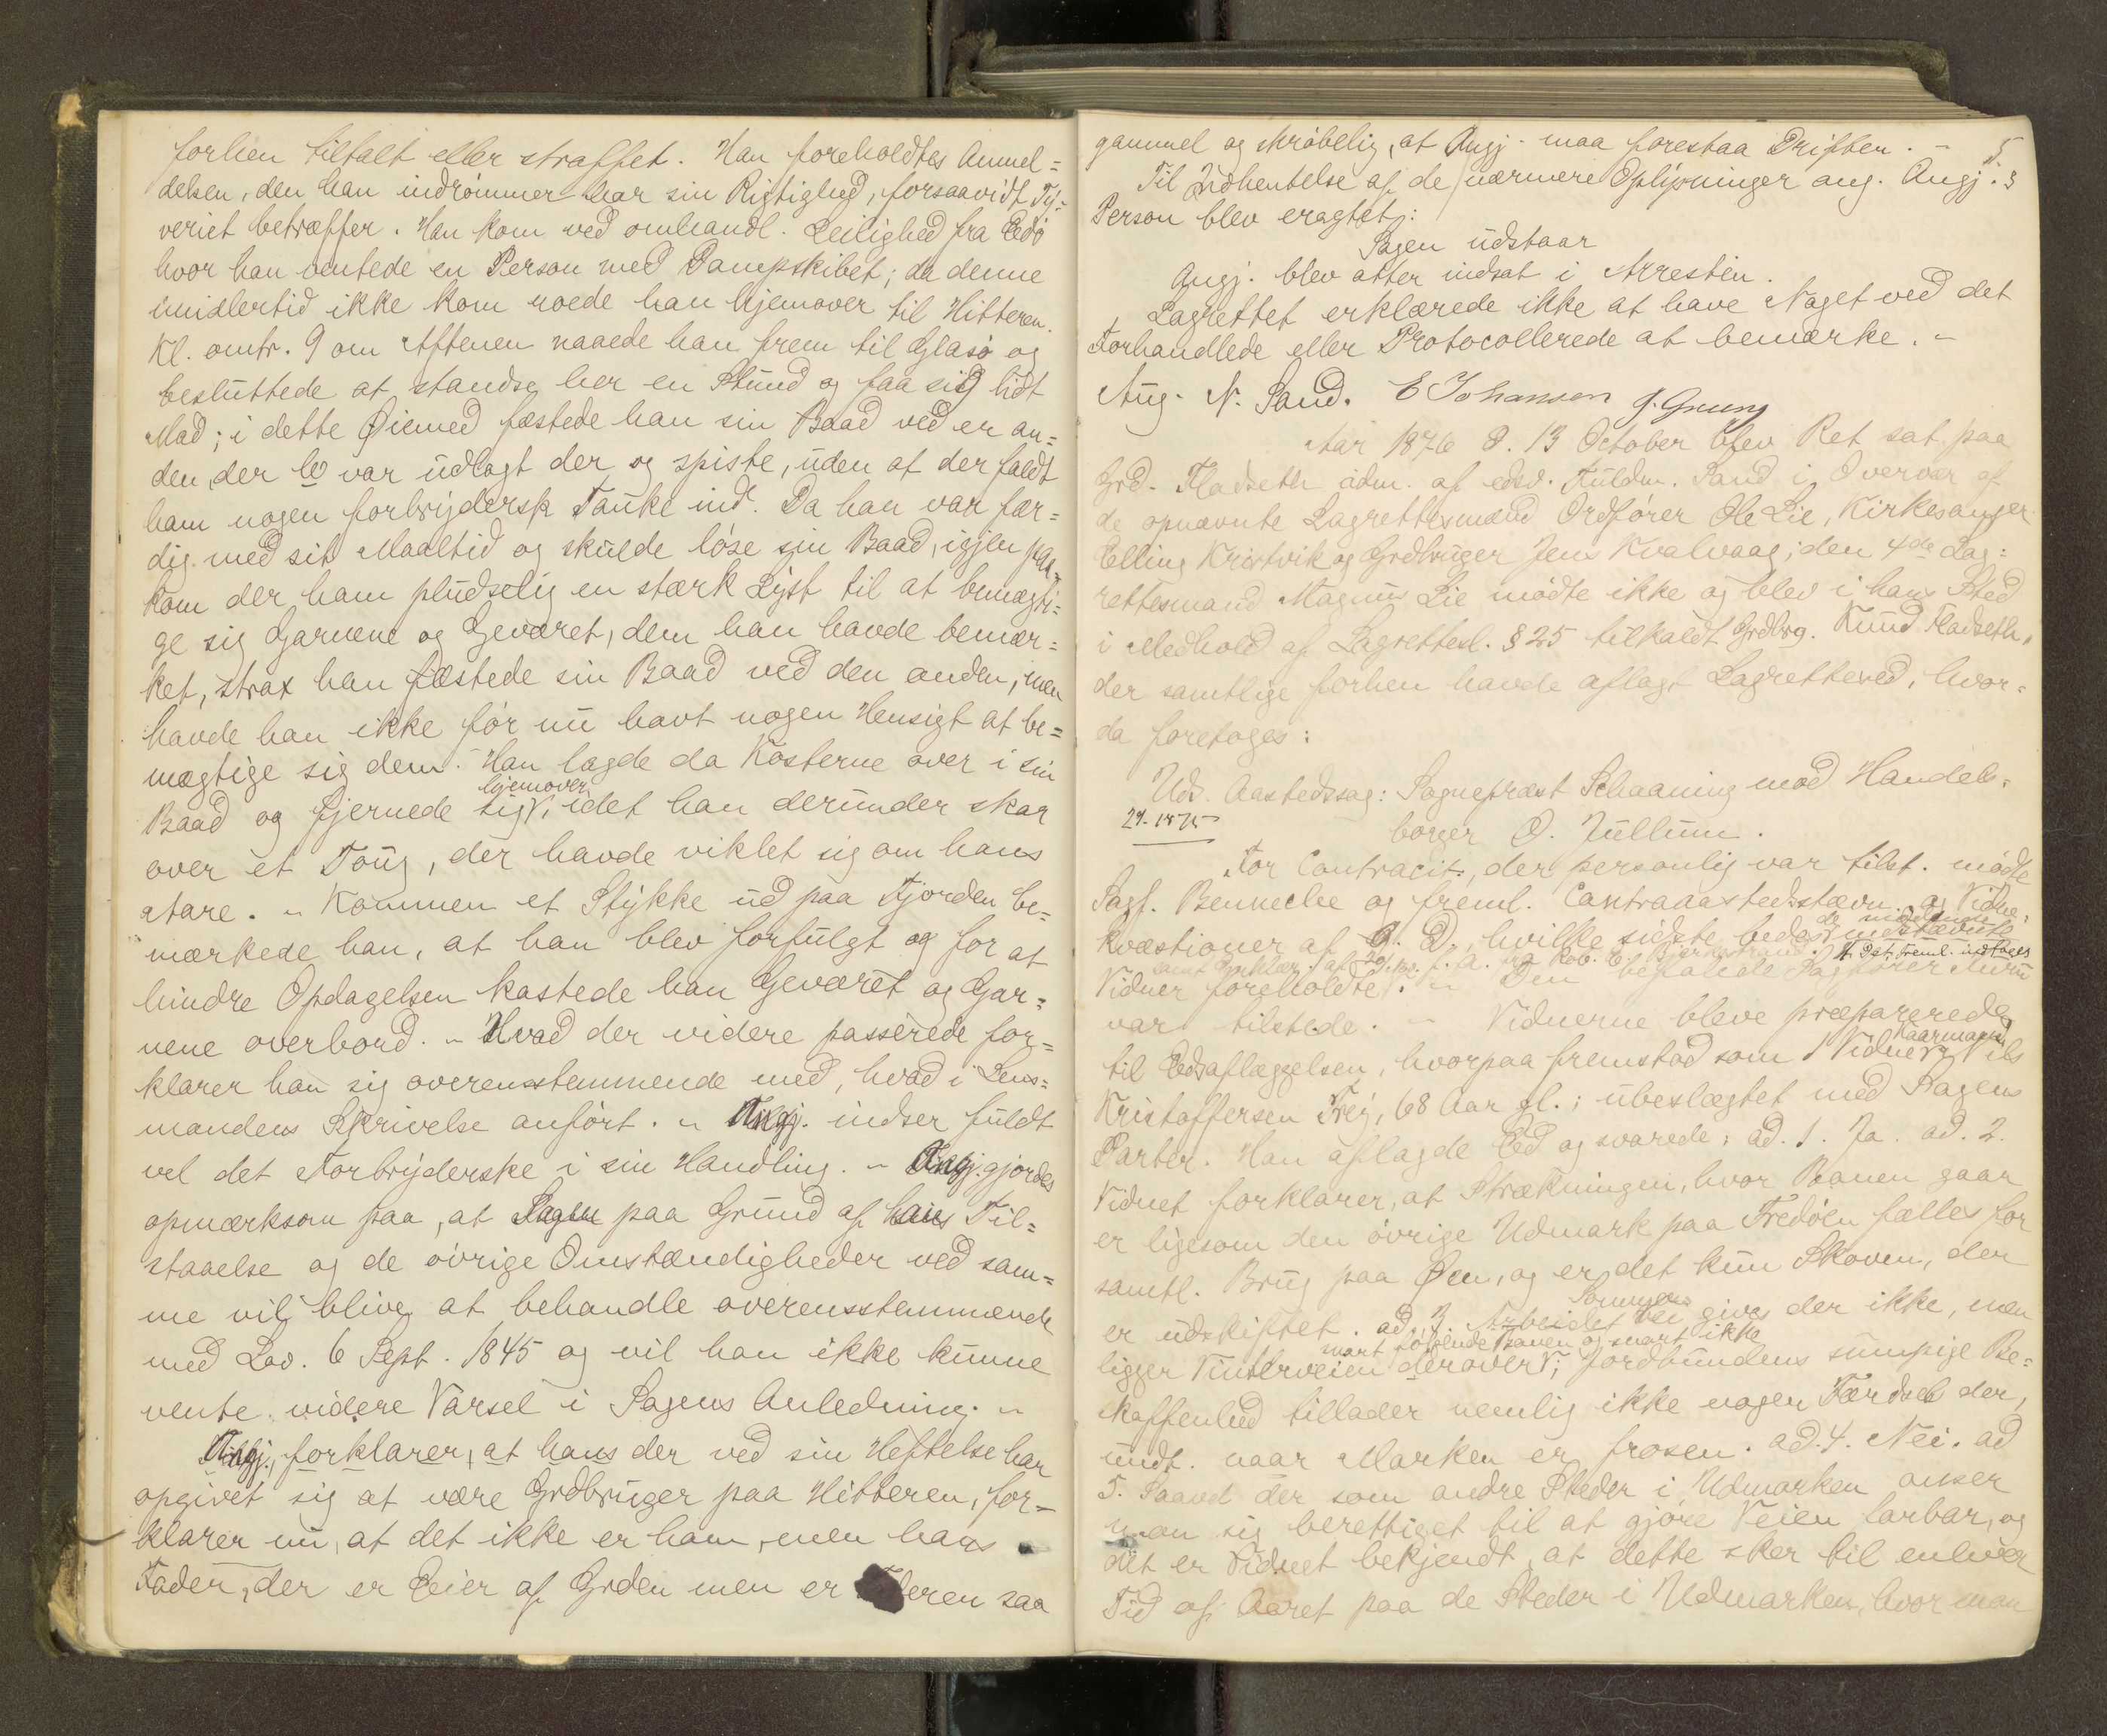 forhen tiltalt eller straffet. Han foreholdtes Anmel=
delsen, den han indrømmer har sin Rigtighed, forsaavidt Ty=
veriet betræffer. Han kom ved omhandl. Leilighed fra Edø
hvor han ventede en Person med Dampskibet; da denne
imidlertid ikke kom roede han hjemover til Hitteren.
Kl. omtr. 9 om Aftenen naaede han frem til Glasø og
besluttede at standse her en Stund og faa sig lidt
Mad; i dette Øiemed fæstede han sin Baad ved en an=
den, der var udlagt der og spiste, uden at der faldt
ham nogen forbrydersk Tanke ind. Da han var fær=
dig med sit Maaltid og skulde løse sin Baad, igjen paa=
kom der ham pludselig en stærk Lyst til at bemægti=
ge sig Garnene og Geværet, dem han havde bemær=
ket, strax han fæstede sin Baad ved den anden, men
havde han ikke før nu havt nogen Hensigt at be=
mægtige sig dem. Han lagde da Kosterne over i sin
hjemover
Baad og fjernede sig, idet han derunder skar
over et Toug, der havde viklet sig om hans
Aare. - Kommen et Stykke ud paa Fjorden be=
mærkede han, at han blev forfulgt og for at
hindre Opdagelsen kastede han Geværet og Gar=
nene overbord. - Hvad der videre passerede for=
klarer han sig overensstemmende med, hvad i Lens=
mandens Skrivelse anført. - Angj. indser fuldt
vel det Forbryderske i sin Handling. - Angj. gjordes
opmærksom paa, at Sagen paa Grund af hans Til=
staaelse og de øvrige Omstændigheder ved sam=
me vil blive at behandle overensstemmende
med Lov. 6 Sept. 1845 og vil han ikke kunne
vente videre Varsel i Sagens Anledning. -
Angj., forklarer, at hans der ved sin Heftelse har
opgivet sig at være Grdbruger paa Hitteren, for=
klarer nu, at det ikke er ham, men hans
Fader, der er Eier af Grden men er saa
gammel og skrøbelig, at Angj. maa forestaa Driften. -
5
Til Indhentelse af de nærmere Oplysninger ang. Angj.s
Person blev eragtet:
Sagen udstaar
Angj. blev atter indsat i Arresten.
Lagrettet erklærede ikke at have Noget ved det
Forhandlede eller Protocollerede at bemærke. -
Aug. N. Sand. E Johansen J. Grung
Aar 1876 d. 13 October blev Ret sat paa
Grd. Fladseth adm. af edsv. Fuldm. Sand i Overvær af
de opnævnte Lagrettesmænd Ordfører Ole Lie, Kirkesanger
Elling Kristvik og Grdbruger Jens Kvalvaag; den 4de Lag=
rettesmand Magnus Lie mødte ikke og blev i hans Sted
i Medhold af Lagrettesl. § 25 tilkaldt Grdbrg. Knud Fladseth,
der samtlige forhen havde aflagt Lagretteed, hvor=
da foretoges:
Uds. Aastedssag: Sogneprest Schaaning mod Handels=
29. 1875
borger O. Jullum.
For Contracit., der personlig var tilst. mødte
Sagf. Benneche og freml. Contraaastedsstævn. og Vidne=
de mødende
kvæstioner af G. D., hvilke sidste bedes indstævnte
Det freml. indtages
Vidner foreholdte. - Den befalede Sagfører
var tilstede. - Vidnerne bleve præparerede
Kaarmand
til Edsaflæggelsen, hvorpaa fremstod som 1 Vidne Nils
Kristoffersen Frej, 68 Aar gl.; ubeslægtet med Sagens
Parter. Han aflagde Ed og svarede: ad. 1. Ja. ad. 2.
Vidnet forklarer, at Strækningen, hvor Banen gaar
er ligesom den øvrige Udmark paa Fredøen fælles for
samtl. Brug paa Øen, og er det kun Skoven, der
Sommer
er udskiftet. ad. 3. Arbeidet Vei gives der ikke, men
snart følgende Banen og snart ikke
ligger Vinterveien derover; Jordbundens sumpige Be=
skaffenhed tillader nemlig ikke nogen Færdsel der,
undt. naar Marken er frosen. ad. 4. Nei. ad
5. Saavel der som andre Steder i Udmarken anser
man sig berettiget til at gjøre Veien farbar, og
det er Vidnet bekjendt, at dette sker til enhver
Tid af Aaret paa de Steder i Udmarken, hvor man